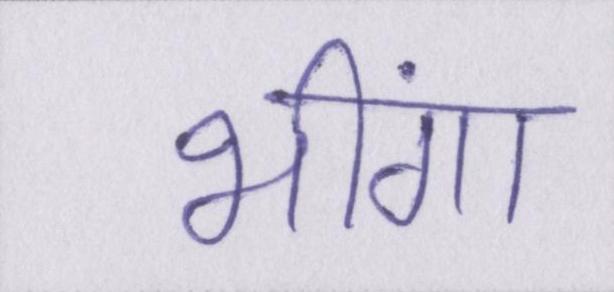 भींगा